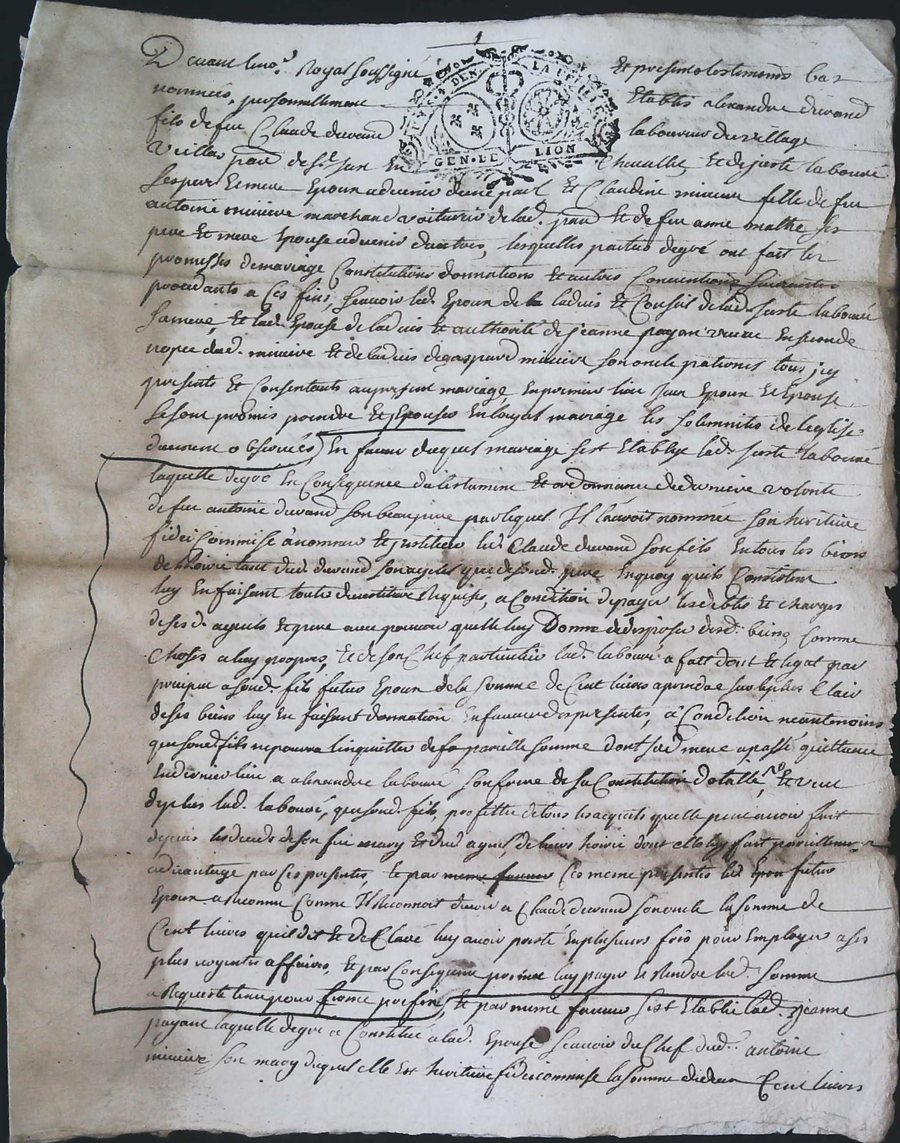 1
Devant le no.re Royal Soussigné Et présents les temoins bas
nommés, personnellement Etablis alexandre durand
fils de feu Claude durand laboureur du village
GEN. DE LION
Veillas par. de St. Jean Chevallier Et de juste labouré
ses pere Et mere Epoux advenir d'une part Et Claudine miniere fille de feu
antoine miniere marchand voiturier de lad. par. Et de feu anne mathe ses
pere Et mere Epouse advenir d'autres, lesquelles parties de gré ont fait les
promesses de mariage Constitutions donnations Et autres Conventions suivantes
procedants a Ces fins, Scavoir led. Epoux de l'advis Et Conseil de lad. juste labouré
sa mere, Et lad. Epouse de l'advis Et authorité de jeanne payan veuve En seconde
nopce dud. miniere Et de l'advis de gaspard miniere son oncle paternel tous jcy
presents Et Consentants au present mariage, En premier lieu Jceux Epoux Et Epouse
se sont promis prendre Et Epouser En loyal mariage les solemnités de l'eglise
duement observées, En faveur duquel mariage s'est Etablye lad. juste labouré
laquelle de gré En Consequence du testament Et ordonnance de derniere volonté
de feu antoine durand son beau pere par lequel Il l'auroit nommée son heritiere
fidei Commise a nommé Et institué led. Claude durand son fils En tous les biens
de hoirie tant dud. durand que de sond. pere En quoy qu'ils Consistent
luy En faisant toutes destitutions Requises, a Condition de payer les debtes Et charges
de ses d. Et avec pouvoir quelle luy Donne de disposer desd. biens Comme
Choses a luy propres, Et de son Chef particulier lad. labouré a fait dont Et legat par
precipu a sond. fils futur Epoux de la somme de Cent livres a prendre sur le plus Clair
de ses biens luy En faisant donnation En faveur des presentes, a Condition neantmoins
que sond. fils ne pourra l'inquietter de sa pareille somme dont sad. mere a passé quittance
En dernier lieu a alexandre labouré son frere de sa Constitution dotalle, Et veut
de plus lad. labouré, que sond. fils, profitte de tous les acquits quelle peut avoir fait
depuis le deceds de son feu mary Et dud. de leurs hoirie dont elle luy fait pareillement
advantage par Ces presentes, Et par Ces meme presentes led. Epoux futur
Epoux a Reconnu Comme Il Reconnoit devoir a Claude durand son oncle la somme de
Cent livres qu'il dit Et declaré luy avoir presté En plusieurs fois pour Employer a ses
plus urgentes affaires, Et par Consequent promet luy payer Et Rendre lad. somme
a Requeste Et par meme faveur s'est Etablie lad. jeanne
payant laquelle de gré a Constitué a lad. Epouse Scavoir du Chef dud. antoine
miniere son mary duquel elle Est heritiere fideicommise la somme de deux Cent livres